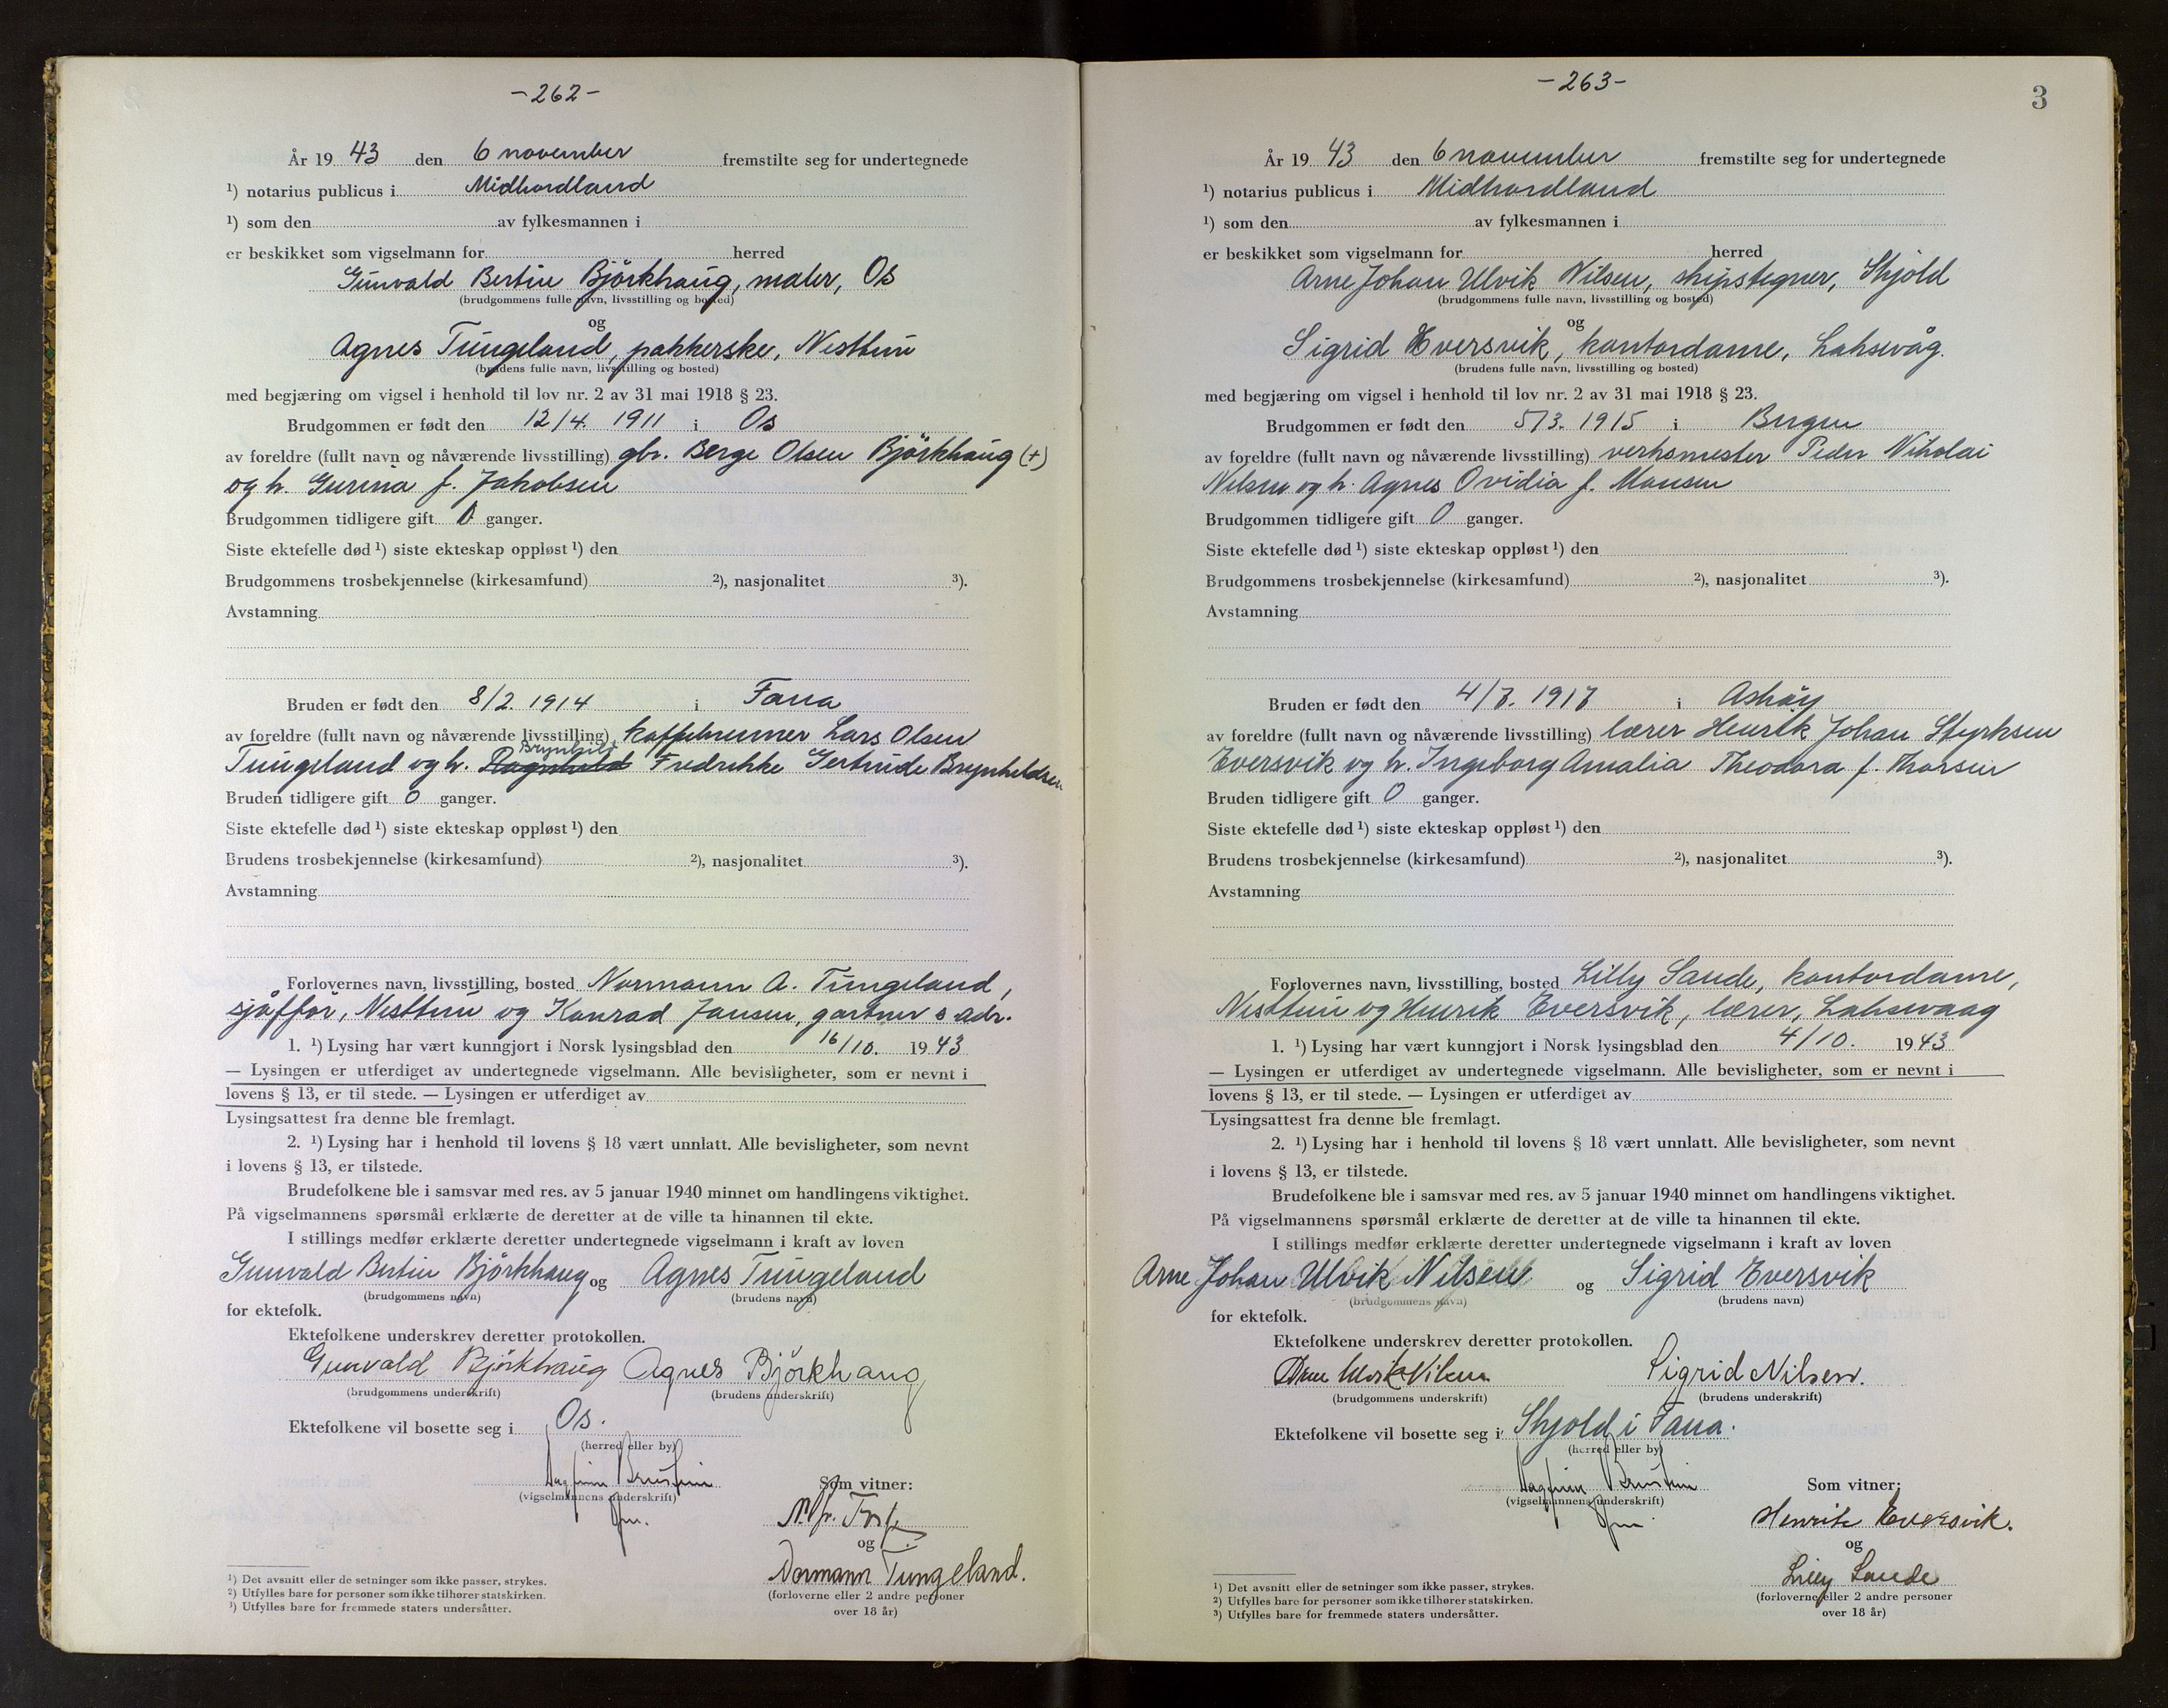 -262-
År 19 43 den 6 november fremstilte seg for undertegnede
¹) notarius publicus i Midhordland
¹) som den av fylkesmannen i
er beskikket som vigselmann for herred
Gunvald Bertin Björkhaug, maler, Os
(brudgommens fulle navn, livsstilling og bosted)
og
Agnes Tungeland, pakkerske, Nesttun
(brudens fulle navn, livsstilling og bosted)
med begjæring om vigsel i henhold til lov nr. 2 av 31 mai 1918 § 23.
Brudgommen er født den 12/4. 1911 i Os
av foreldre (fullt navn og nåværende livsstilling) gbr. Berge Olsen Björkhaug (+)
og h. Gurina f. Jakobsen
Brudgommen tidligere gift 0 ganger.
Siste ektefelle død ¹) siste ekteskap oppløst ¹) den
Brudgommens trosbekjennelse (kirkesamfund) ²), nasjonalitet ³).
Avstamning
Bruden er født den 8/2. 1914 i Fana
av foreldre (fullt navn og nåværende livsstilling) kaffebrenner Lars Olsen
Brynhild
Tungeland og h. Ragnhild Fredrikke Gertrude Brynhildsen
Bruden tidligere gift 0 ganger.
Siste ektefelle død ¹) siste ekteskap oppløst ¹) den
Brudens trosbekjennelse (kirkesamfund) ²), nasjonalitet ³).
Avstamning
Forlovernes navn, livsstilling, bosted Normann A. Tungeland,
sjåffør, Nesttun og Konrad Jansen, gartner s adr.
1. ¹) Lysing har vært kunngjort i Norsk lysingsblad den 16/10. 19 43
— Lysingen er utferdiget av undertegnede vigselmann. Alle bevisligheter, som er nevnt i
lovens § 13, er til stede. — Lysingen er utferdiget av
Lysingsattest fra denne ble fremlagt.
2. ¹) Lysing har i henhold til lovens § 18 vært unnlatt. Alle bevisligheter, som nevnt
i lovens § 13, er tilstede.
Brudefolkene ble i samsvar med res. av 5 januar 1940 minnet om handlingens viktighet.
På vigselmannens spørsmål erklærte de deretter at de ville ta hinannen til ekte.
I stillings medfør erklærte deretter undertegnede vigselmann i kraft av loven
Gunvald Bertin Björkhaug og Agnes Tungeland
(brudgommens navn) (brudens navn)
for ektefolk.
Ektefolkene underskrev deretter protokollen.
Gunvald Björkhaug Agnes Björkhaug
(brudgommens underskrift) (brudens underskrift)
Ektefolkene vil bosette seg i Os.
(herred eller by)
Som vitner:
(vigselmannens underskrift)
og
Normann Tungeland.
(forloverne eller 2 andre personer
over 18 år)
¹) Det avsnitt eller de setninger som ikke passer, strykes.
²) Utfylles bare for personer som ikke tilhører statskirken.
³) Utfylles bare for fremmede staters undersåtter.
-263-
3
År 19 43 den 6 november fremstilte seg for undertegnede
¹) notarius publicus i Midhordland
¹) som den av fylkesmannen i
er beskikket som vigselmann for herred
Arne Johan Ulvik Nilsen, skipstegner, Skjold
(brudgommens fulle navn, livsstilling og bosted)
og
Sigrid Eversvik, kontordame, Laksevåg.
(brudens fulle navn, livsstilling og bosted)
med begjæring om vigsel i henhold til lov nr. 2 av 31 mai 1918 § 23.
Brudgommen er født den 5/3. 1915 i Bergen
av foreldre (fullt navn og nåværende livsstilling) verksmester Peder Nikolai
Nilsen og h. Agnes Ovidia f. Monsen
Brudgommen tidligere gift 0 ganger.
Siste ektefelle død ¹) siste ekteskap oppløst ¹) den
Brudgommens trosbekjennelse (kirkesamfund) ²), nasjonalitet ³).
Avstamning
Bruden er født den 4/7. 1917 i Askøy
av foreldre (fullt navn og nåværende livsstilling) lærer Henrik Johan Styrksen
Eversvik og h. Ingeborg Amalia Theodora f. Thorsen
Bruden tidligere gift 0 ganger.
Siste ektefelle død ¹) siste ekteskap oppløst ¹) den
Brudens trosbekjennelse (kirkesamfund) ²), nasjonalitet ³).
Avstamning
Forlovernes navn, livsstilling, bosted Lilly Sande, kontordame,
Nesttun og Henrik Eversvik, lærer, Laksevaag
1. ¹) Lysing har vært kunngjort i Norsk lysingsblad den 4/10. 19 43
— Lysingen er utferdiget av undertegnede vigselmann. Alle bevisligheter, som er nevnt i
lovens § 13, er til stede. — Lysingen er utferdiget av
Lysingsattest fra denne ble fremlagt.
2. ¹) Lysing har i henhold til lovens § 18 vært unnlatt. Alle bevisligheter, som nevnt
i lovens § 13, er tilstede.
Brudefolkene ble i samsvar med res. av 5 januar 1940 minnet om handlingens viktighet.
På vigselmannens spørsmål erklærte de deretter at de ville ta hinannen til ekte.
I stillings medfør erklærte deretter undertegnede vigselmann i kraft av loven
Arne Johan Ulvik Nilsen og Sigrid Eversvik
(brudgommens navn) (brudens navn)
for ektefolk.
Ektefolkene underskrev deretter protokollen.
Arne Ulvik Nilsen Sigrid Nilsen.
(brudgommens underskrift) (brudens underskrift)
Ektefolkene vil bosette seg i Skjold i Fana.
(herred eller by)
Som vitner:
(vigselmannens underskrift)
Henrik Eversvik.
og
Lilly Sande
(forloverne eller 2 andre personer
over 18 år)
¹) Det avsnitt eller de setninger som ikke passer, strykes.
²) Utfylles bare for personer som ikke tilhører statskirken.
³) Utfylles bare for fremmede staters undersåtter.